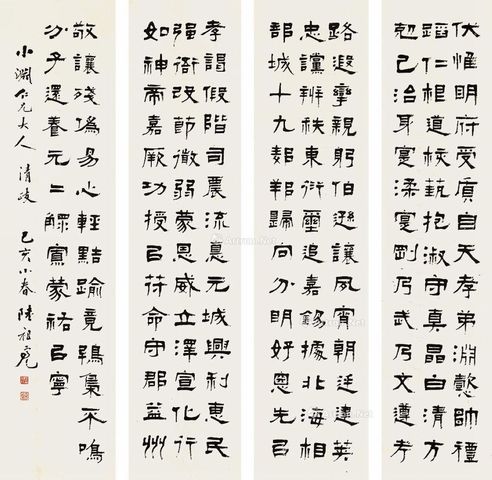 伏惟明府受質自天孝弟淵懿帥禮
蹈仁相道核藝抱淑守真晶白清方
剋己治身寔柔寔剛乃武乃文遵孝
路遐攣親躬伯遜讓夙宵朝廷建英
忠讜辨秩東衍璽追嘉錫據北海相
部城十九鄰邦歸向分明好惡先㠯
孝謁假階司農流惠元城興利惠民
強衙改節微弱蒙恩威立澤宣化行
如神帝嘉厥功授㠯符命守郡益州
敬讓殘偽易心輕黠踰竟鴞梟不鳴
分子還養元二鰥寡蒙祐㠯寧
小淵仁兄大人 清 己亥小春 陸